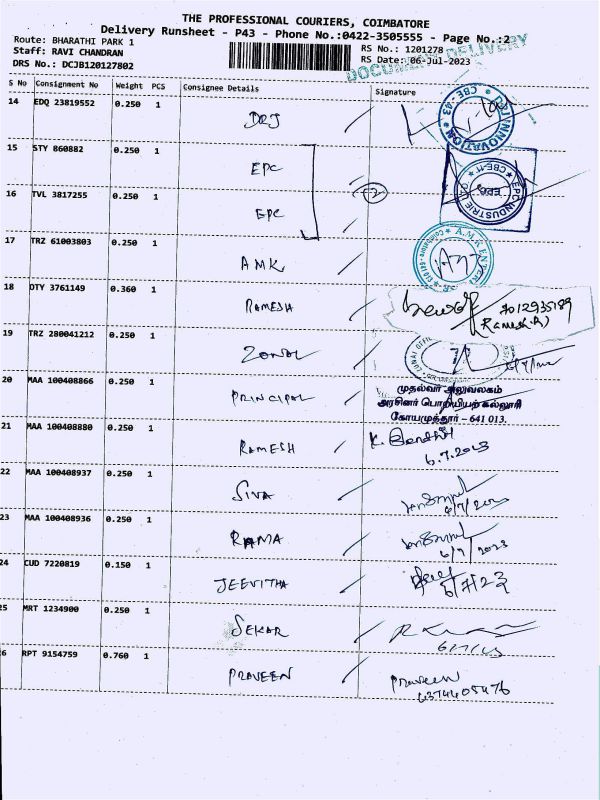 THE PROFESSIONAL COURIERS, COIMBATORE
Delivery Runsheet - P43 - Phone No.:0422-3505555 - Page No.:2
Route: BHARATHI PARK 1
Staff: RAVI CHANDRAN
DRS No.: DCJB120127802
RS No.: 1201278
RS Date: 06-Jul-2023
DOCUMENT DELIVERY
S No Consignment No Weight PCS Consignee Details Signature
14 EDQ 23819552 0.250 1 DRJ
INNOVATION CBE - 43
15 STY 860882 0.250 1 EPC
16 TVL 3817255 0.250 1 EPC
2
EPC INDUSTRIE CBE-11 EPC
17 TRZ 61003803 0.250 1 AMK
A.M.K ENTER Coimbatore - 641
18 OTY 3761149 0.360 1 RAMESH
7012935189
Ramesh.R)
19 TRZ 280041212 0.250 1 ZONAL
20 MAA 100408866 0.250 1 PRINCIPAL
முதல்வர் அலுவலகம்
அரசினர் பொறியியற் கல்லூரி
கோயமுத்தூர் - 641 013.
21 MAA 100408880 0.250 1 RAMESH
6.7.2023
22 MAA 100408937 0.250 1 SIVA
6/7/2023
23 MAA 100408936 0.250 1 RAMA
6/7/2023
24 CUD 7220819 0.150 1 JEEVITHA
6/7/23
25 MRT 1234900 0.250 1 SEKAR
6 RPT 9154759 0.760 1 PRAVEEN
Praveen
6374405476